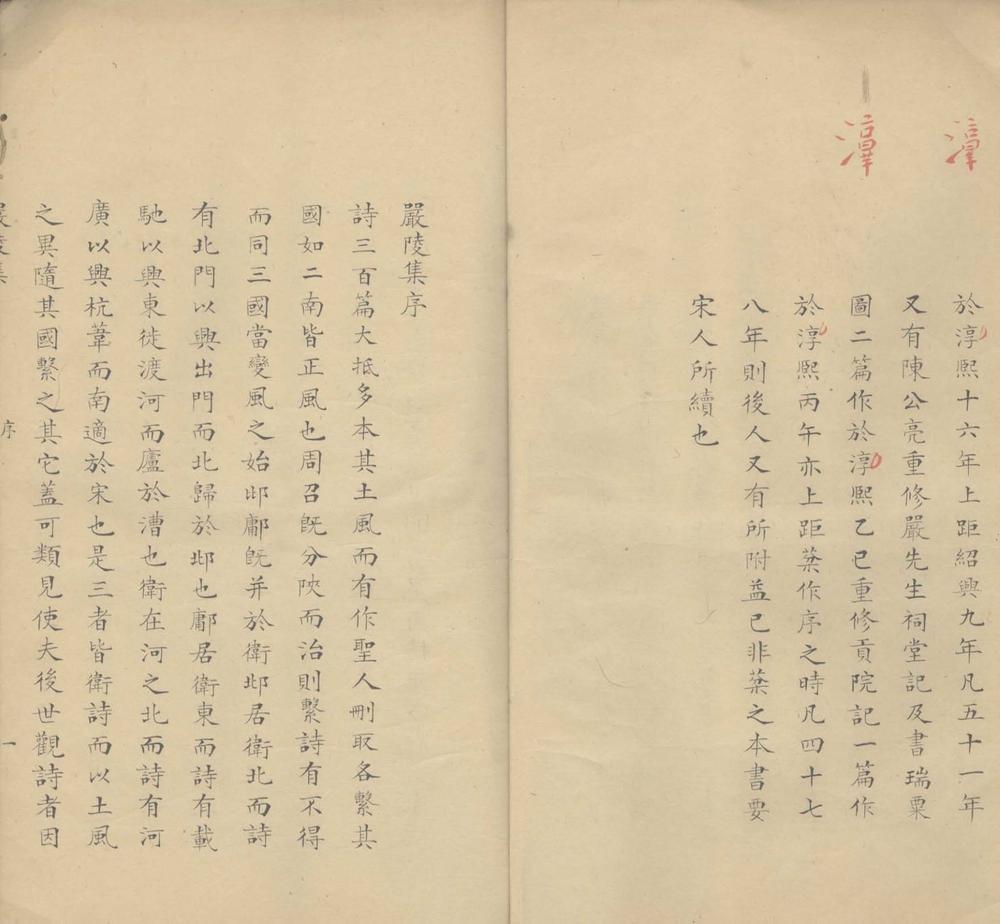 於淳熙十六年上距紹興九年凡五十一年
又有陳公亮重修嚴先生祠堂記及書瑞粟
圖二篇作於淳熙乙巳重修貢院記一篇作
於淳熙丙午亦上距棻作序之時凡四十七
八年則後人又有所附益已非棻之本書要
宋人所續也
嚴陵集序
詩三百篇大抵多本其土風而有作聖人刪取各繫其
國如二南皆正風也周召旣分陝而治則繫詩有不得
而同三國當變風之始邶鄘旣并於衛邶居衛北而詩
有北門以興出門而北歸於邶也鄘居衛東而詩有載
馳以興東徙渡河而廬於漕也衛在河之北而詩有河
廣以興杭葦而南適於宋也是三者皆衛詩而以土風
之異隨其國繫之其它蓋可類見使夫後世觀詩者因
嚴陵集
序
一